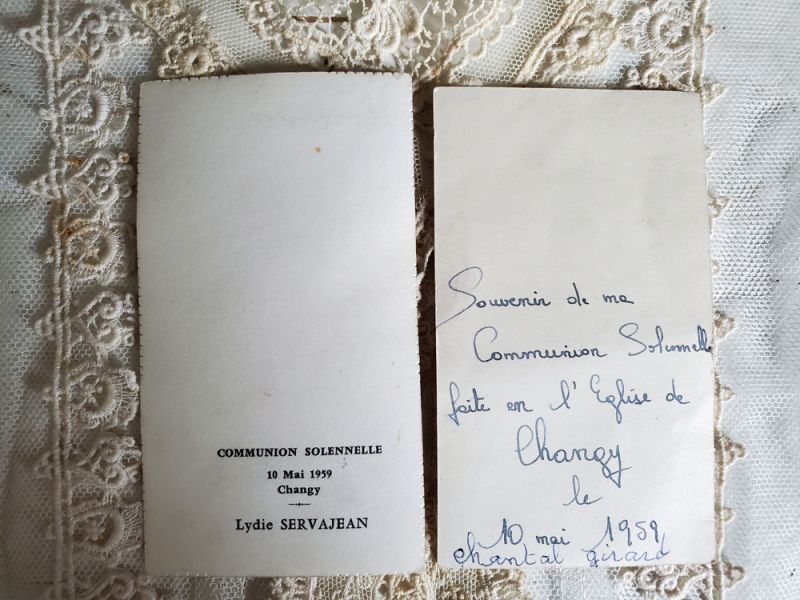 COMMUNION SOLENNELLE
10 Mai 1959
Changy
Lydie SERVAJEAN
Souvenir de ma
Communion Solennelle
faite en l'Eglise de
Changy
le
10 mai 1959
chantal girard